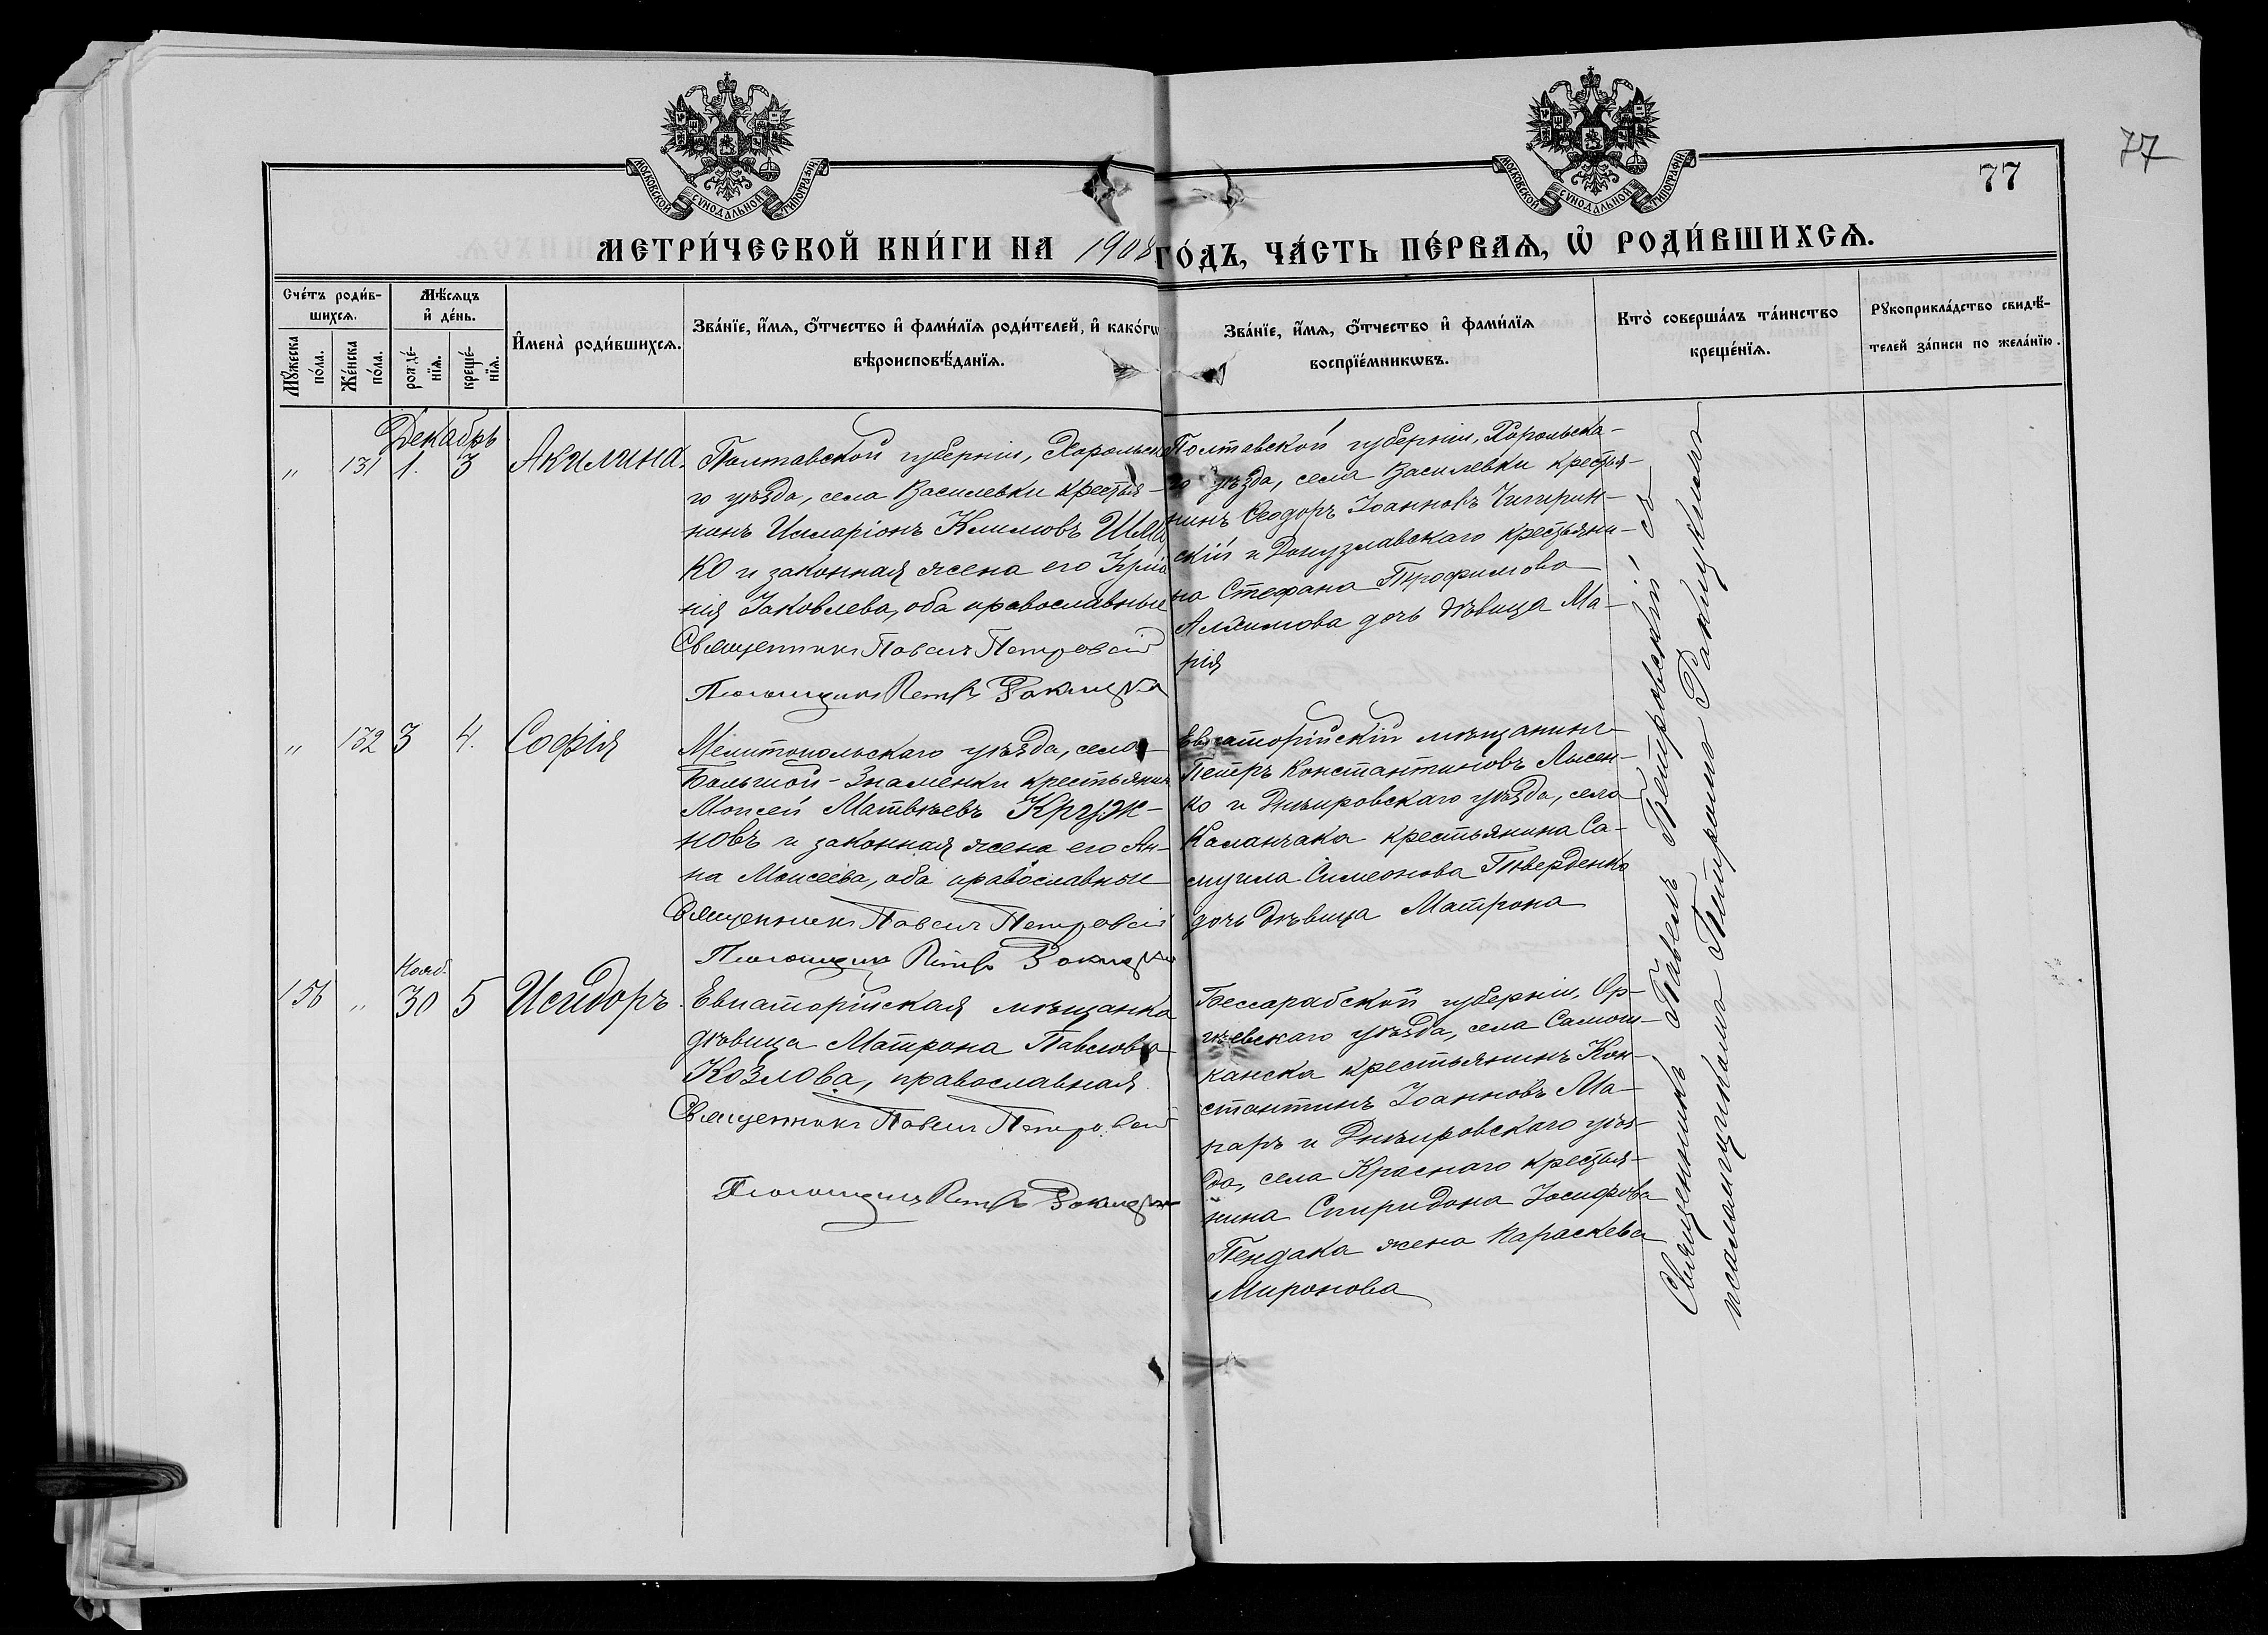 77
МОСКОВСКОЙ СѴНОДАЛЬНОЙ ТИПОГРАФІИ
МОСКОВСКОЙ СѴНОДАЛЬНОЙ ТИПОГРАФІИ
77
МЕТРИ́ЧЕСКОЙ КНИ́ГИ НА 1908 ГО́ДЪ, ЧА́СТЬ ПЕ́РВАѦ, Ѡ҆ РОДИ́ВШИХСѦ.
Сче́тъ роди́в-
шихсѧ.
Мꙋ́жеска по́ла.
Же́нска по́ла.
Мѣ́сѧцъ и҆ де́нь.
рожде́-нїѧ.
креще́-нїѧ.
И҆мена̀ роди́вшихсѧ.
Зва́нїе, и҆́мѧ, ѻ҆́тчество и҆ фами́лїѧ роди́телей, и҆ како́гѡ
вѣроисповѣ́данїѧ.
Зва́нїе, и҆́мѧ, ѻ҆́тчество и҆ фами́лїѧ
воспрїе́мникѡвъ.
Кто̀ соверша́лъ та́инство
креще́нїѧ.
Рꙋкоприкла́дство свидѣ́-
телей за́писи по жела́нїю.
Декабрь
" 131 1. 3 Акилина.
Полтавской губерніи, Хорольска-
го уѣзда, села Василевки крестья-
нинъ Илларіонъ Климовъ
ко и законная жена его
нія Іаковлева, оба православные
Священникъ Павелъ Петровскій
Псаломщикъ Петръ Ракицкій
Полтавской губерніи, Хорольска-
го уѣзда, села Василевки крестья-
нинъ Ѳеодоръ Іоанновъ Чигирин-
скій и Донузлавскаго крестьяни-
на Стефана Трофимова
Алхимова дочь дѣвица Ма-
рія
" 132 3 4. Софія
Мелитопольскаго уѣзда, села
Большой-Знаменки крестьянинъ
Моисей Матвѣевъ Круж-
новъ и законная жена его Ан-
на Моисеева, оба православные
Священникъ Павелъ Петровскій
Псаломщикъ Петръ Ракицкій
Евпаторійскій мѣщанинъ
Петръ Константиновъ Лысен-
ко и Днѣпровскаго уѣзда, села
Каланчака крестьянина Са-
муила Симеонова
дочь дѣвица Матрона
Нояб.
156 " 30 5 Исидоръ.
Евпаторійская мѣщанка
дѣвица Матрона Павлова
Козлова, православная.
Священникъ Павелъ Петровскій
Псаломщикъ Петръ Ракицкій
Бессарабской губерніи, Ор-
гѣевскаго уѣзда, села
крестьянинъ Кон-
стантинъ Іоанновъ Ма-
гаръ и Днѣпровскаго уѣз-
да, села Краснаго крестья-
нина Спиридона Іосифова
Пендака жена Параскева
Миронова
Священникъ Павелъ Петровскій съ
псаломщикомъ Петромъ Ракицкимъ